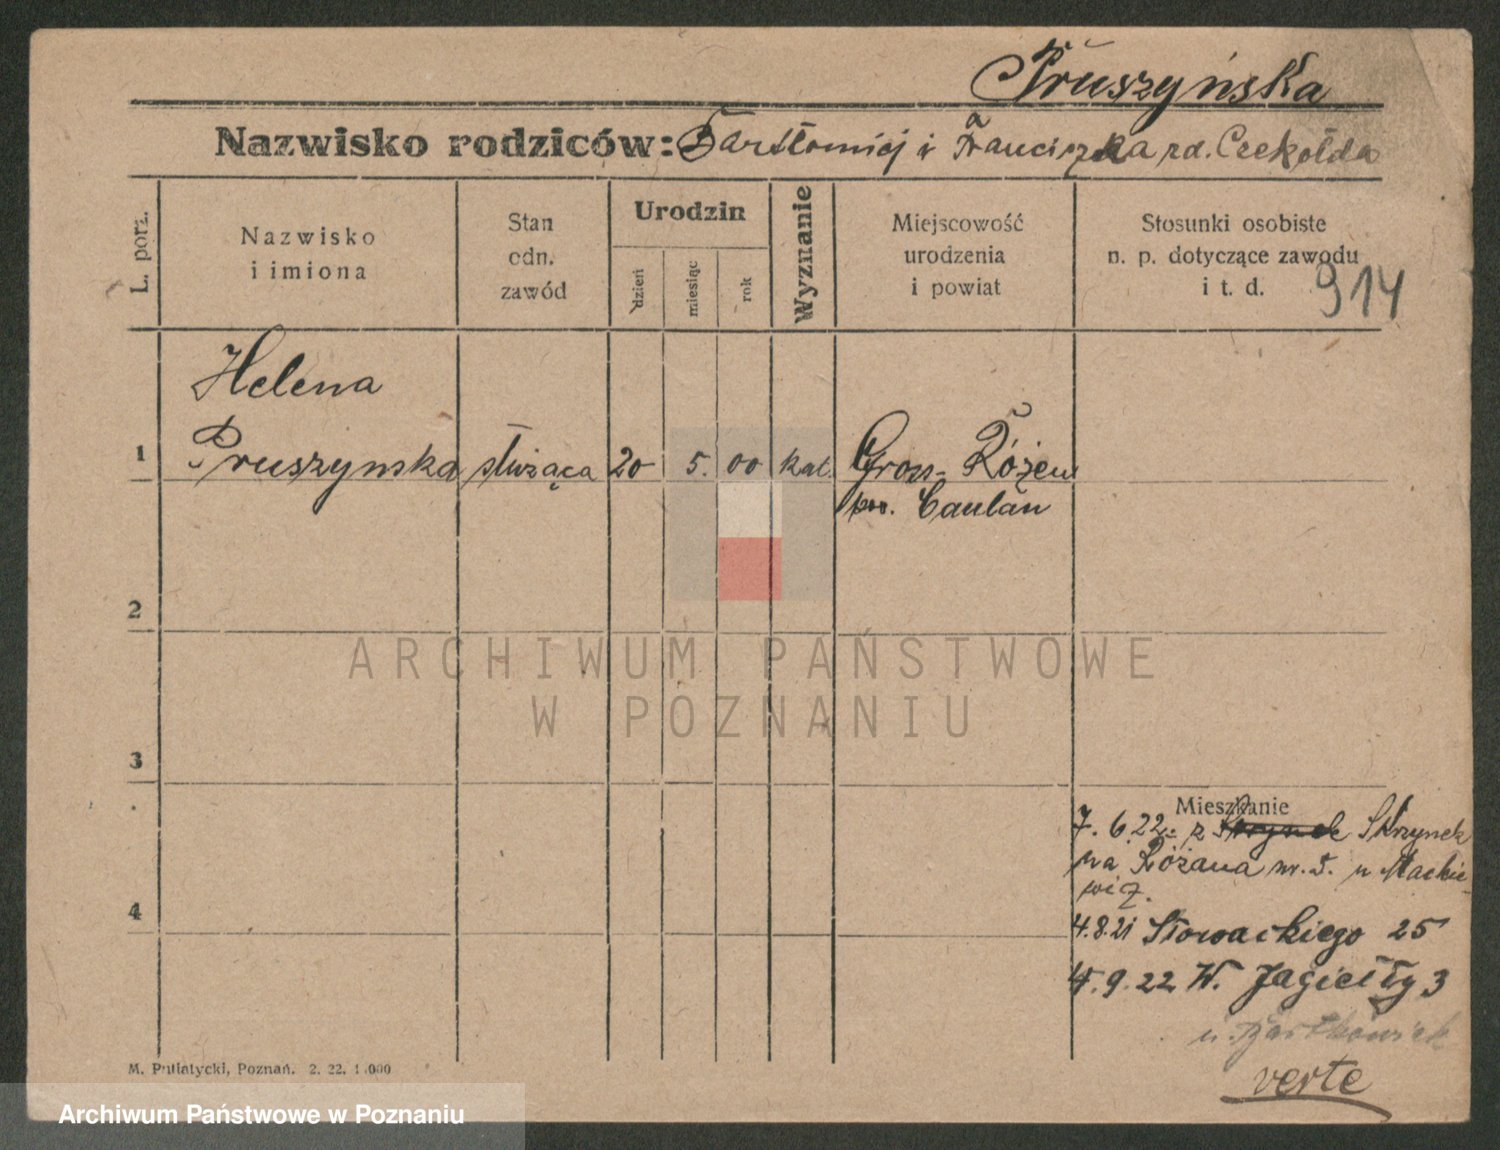 Pruszyńska
Nazwisko rodziców: Bartłomiej i Franciszka rd. Czekołda
L. porz.
Nazwisko
i imiona
Stan
odn.
zawód
Urodzin
dzień
miesiąc
rok
Wyznanie
Miejscowość
urodzenia
i powiat
Stosunki osobiste
n. p. dotyczące zawodu
i t. d.
914
Helena
1 Pruszynska służąca 20 5. 00 kat. Gross-Różem
pow.
2
ARCHIWUM PAŃSTWOWE
W POZNANIU
3
Mieszkanie
7. 6. 22. z Skrzynek
na Różana nr. 5. u Mackie-
wicz.
4
4.8.21 Słowackiego 25
4.9.22 W. Jagiełły 3
u Bartkowiak
verte
M. Putiatycki, Poznań. 2. 22. 1.000
Archiwum Państwowe w Poznaniu